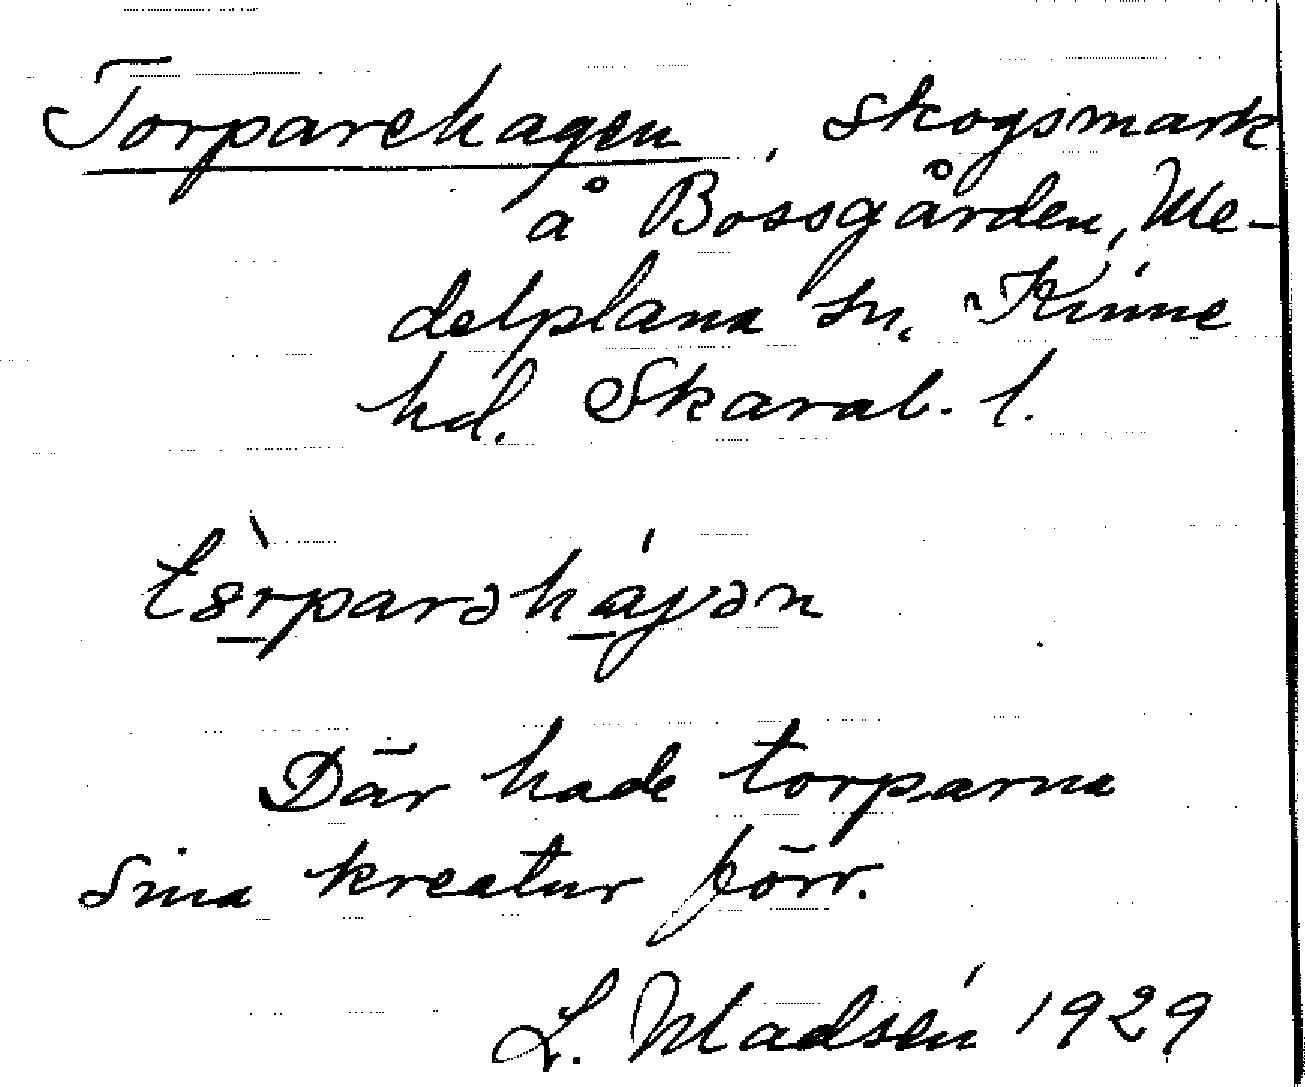 Torparehagen, skogsmark
å Bossgården, Me-
delplana sn, Kinne
hd. Skarab. l.
tȣ̀rparəhájən
Där hade torparna
sina kreatur förr.
L. Madsén 1929